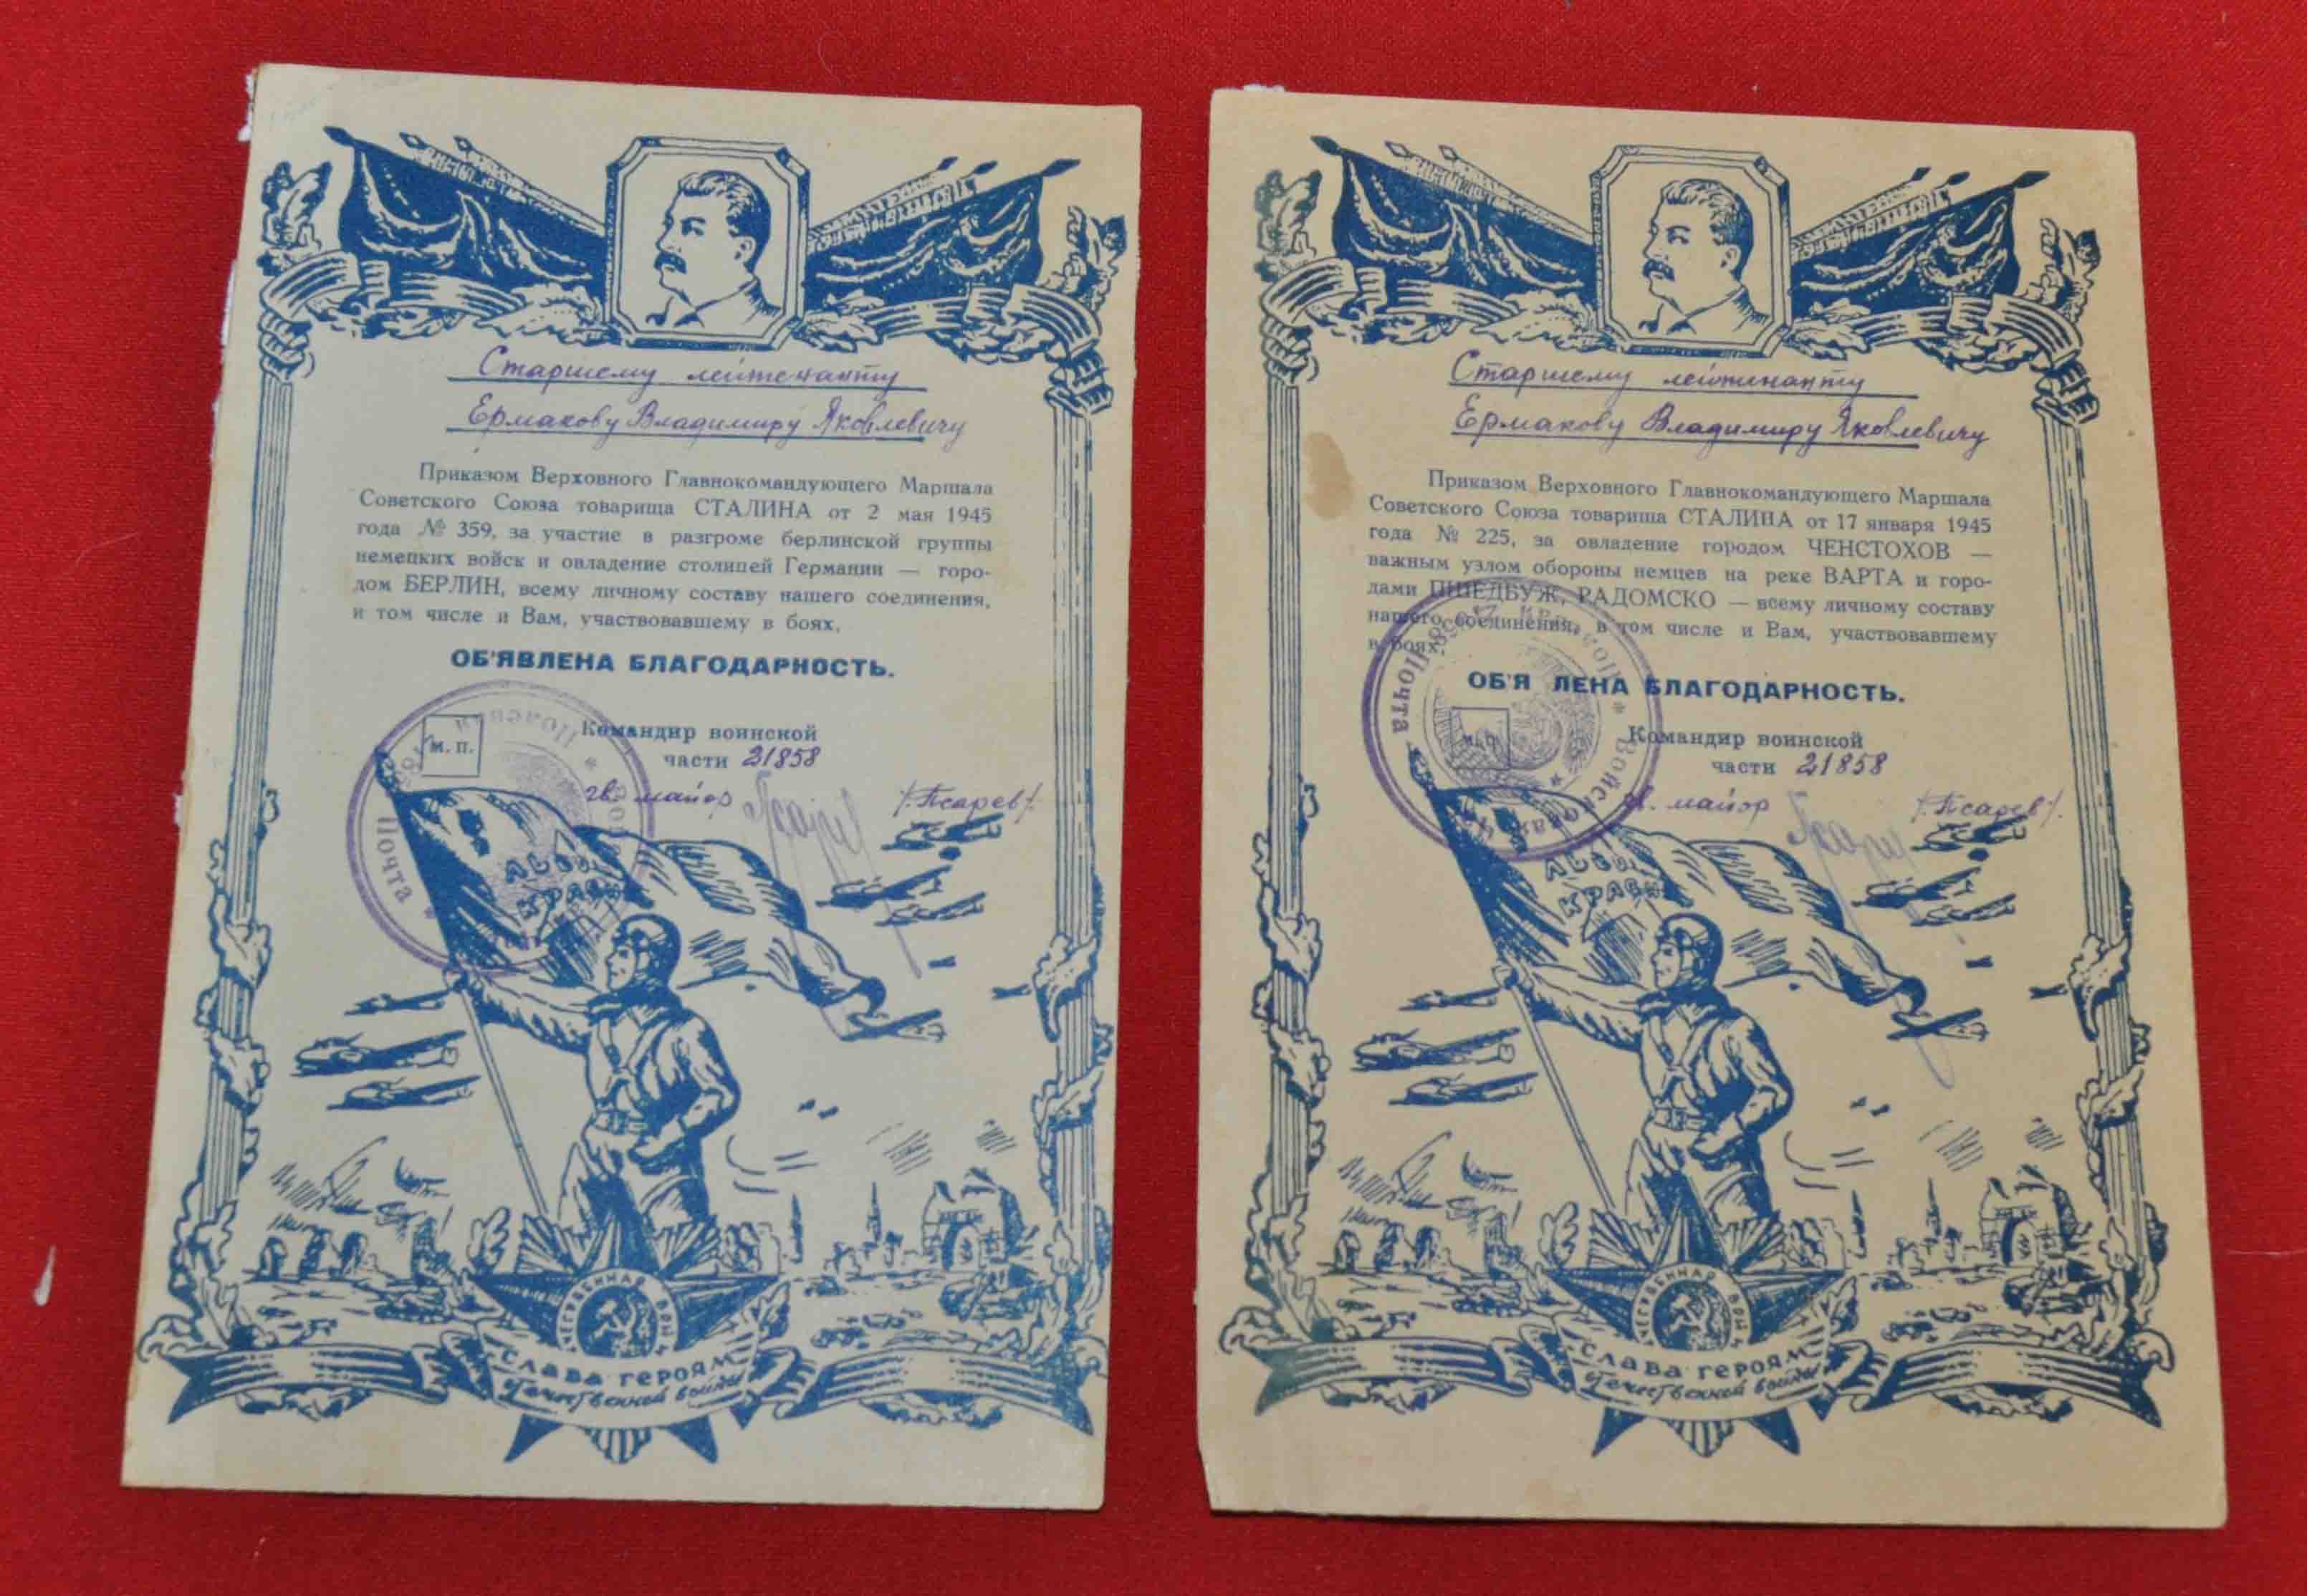 Старшему лейтенанту
Ермакову Владимиру Яковлевичу
Приказом Верховного Главнокомандующего Маршала
Советского Союза товарища СТАЛИНА от 2 мая 1945
года № 359, за участие в разгроме берлинской группы
немецких войск и овладение столицей Германии — горо-
дом БЕРЛИН, всему личному составу нашего соединения,
и том числе и Вам, участвовавшему в боях,
ОБ'ЯВЛЕНА БЛАГОДАРНОСТЬ.
М. П.
Командир воинской
части 21858
гв. майор /Псарев/.
Полевая Почта
КРАСН
СЛАВА ГЕРОЯМ
отечественной войны
Старшему лейтенанту
Ермакову Владимиру Яковлевичу
Приказом Верховного Главнокомандующего Маршала
Советского Союза товарища СТАЛИНА от 17 января 1945
года № 225, за овладение городом ЧЕНСТОХОВ —
важным узлом обороны немцев на реке ВАРТА и горо-
дами ПШЕДБУЖ, РАДОМСКО — всему личному составу
нашего соединения, в том числе и Вам, участвовавшему
в боях,
ОБ'Я ЛЕНА БЛАГОДАРНОСТЬ.
Командир воинской
части 21858
гв. майор /Псарев/.
Почта
КРАСН
СЛАВА ГЕРОЯМ
отечественной войны